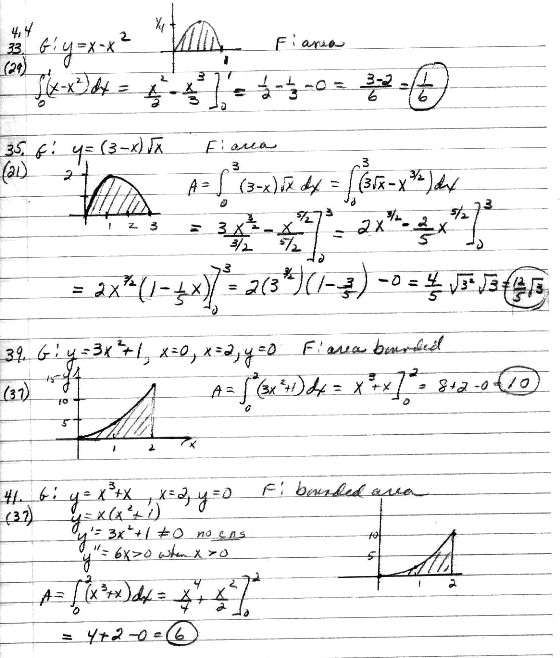 4.4
33. G: y = x - x² F: area
(29)
∫₀¹ (x - x²) dx = x²/2 - x³/3 ]₀¹ = 1/2 - 1/3 - 0 = (3-2)/6 = 1/6
35. G: y = (3-x)√x F: area
(21)
2
1 2 3
A = ∫₀³ (3-x)√x dx = ∫₀³ (3√x - x^(3/2)) dx
= 3x^(3/2)/(3/2) - x^(5/2)/(5/2) ]₀³ = 2x^(3/2) - 2/5 x^(5/2) ]₀³
= 2x^(3/2) (1 - 1/5 x) ]₀³ = 2(3^(3/2))(1 - 3/5) - 0 = 4/5 √3² √3 = 12/5 √3
39. G: y = 3x² + 1, x=0, x=2, y=0 F: area bounded
(37)
15 y
10
5
1 2 x
A = ∫₀² (3x²+1) dx = x³ + x ]₀² = 8+2-0 = 10
41. G: y = x³+x, x=2, y=0 F: bounded area
(37) y = x(x²+1)
y' = 3x²+1 ≠ 0 no cns
y'' = 6x > 0 when x > 0
10
5
1 2
A = ∫₀² (x³+x) dx = x⁴/4 + x²/2 ]₀²
= 4+2-0 = 6